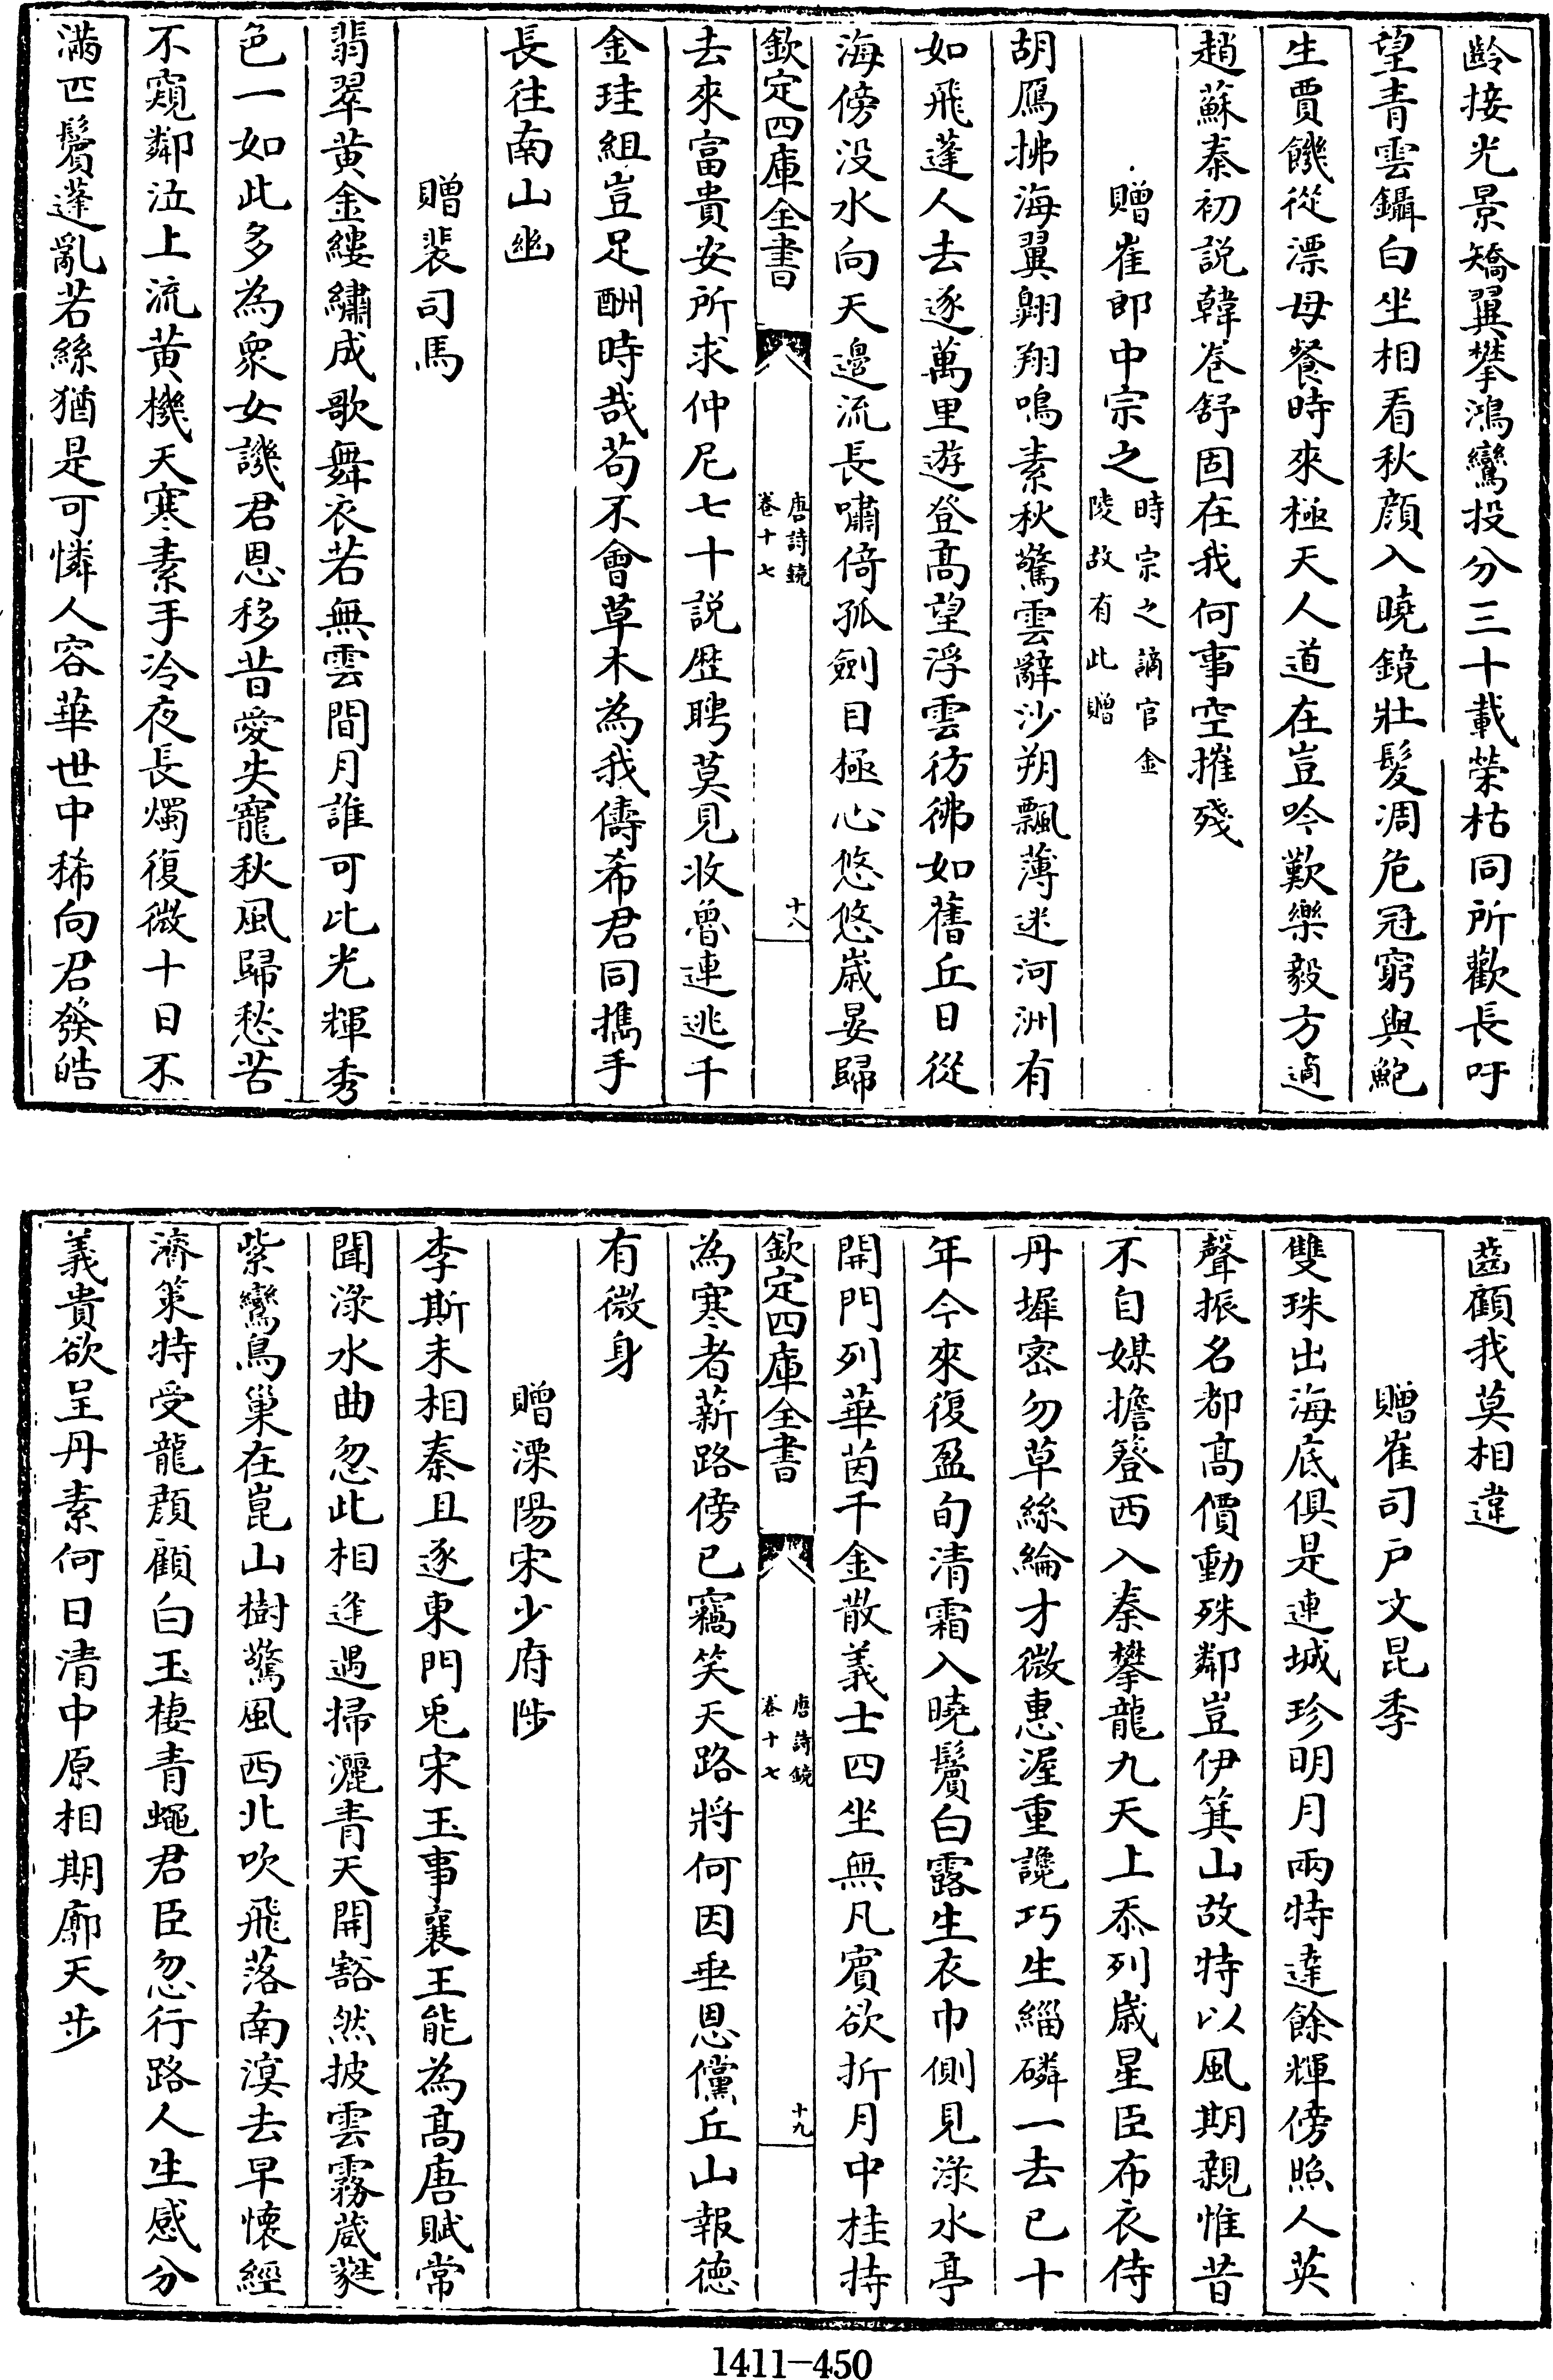 齡接光景矯翼攀鴻鸞投分三十載榮枯同所歡長吁
望青雲鑷白坐相看秋顔入曉鏡壯髮凋危冠窮與鮑
生賈饑從漂母餐時來極天人道在豈吟歎樂毅方適
趙蘇秦初説韓卷舒固在我何事空摧殘
贈崔郎中宗之時宗之謫官金
陵故有此贈
胡鴈拂海翼翺翔鳴素秋驚雲辭沙朔飄薄迷河洲有
如飛蓬人去逐萬里遊登髙望浮雲彷彿如舊丘日從
海傍没水向天邉流長嘯倚孤劍目極心悠悠嵗晏歸
欽定四庫全書
唐詩鏡
卷十七
十八
去來富貴安所求仲尼七十説歴聘莫見收魯連逃千
金珪組豈足酬時哉苟不會草木為我儔希君同攜手
長往南山幽
贈裴司馬
翡翠黄金縷繡成歌舞衣若無雲間月誰可比光輝秀
色一如此多為衆女譏君恩移昔愛失寵秋風歸愁苦
不窺鄰泣上流黄機天寒素手冷夜長燭復微十日不
滿匹鬢蓬亂若絲猶是可憐人容華世中稀向君發皓
齒顧我莫相違
贈崔司户文昆季
雙珠出海底俱是連城珍明月兩特達餘輝傍照人英
聲振名都髙價動殊鄰豈伊箕山故特以風期親惟昔
不自媒擔簦西入秦攀龍九天上忝列嵗星臣布衣侍
丹墀密勿草絲綸才微惠渥重讒巧生緇磷一去已十
年今來復盈旬清霜入曉鬢白露生衣巾側見渌水亭
開門列華茵千金散義士四坐無凡賓欲折月中桂持
欽定四庫全書
唐詩鏡
卷十七
十九
為寒者薪路傍已竊笑天路將何因垂恩儻丘山報徳
有微身
贈溧陽宋少府陟
李斯未相秦且逐東門兎宋玉事襄王能為髙唐賦常
聞渌水曲忽此相逢遇掃灑青天開豁然披雲霧葳蕤
紫鸞鳥巢在崑山樹驚風西北吹飛落南溟去早懐經
濟策特受龍顔顧白玉棲青蠅君臣忽行路人生感分
義貴欲呈丹素何日清中原相期廓天步
1411—450